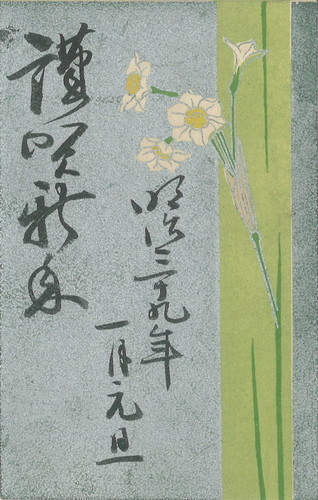 謹賀新年
明治三十九年
一月元旦